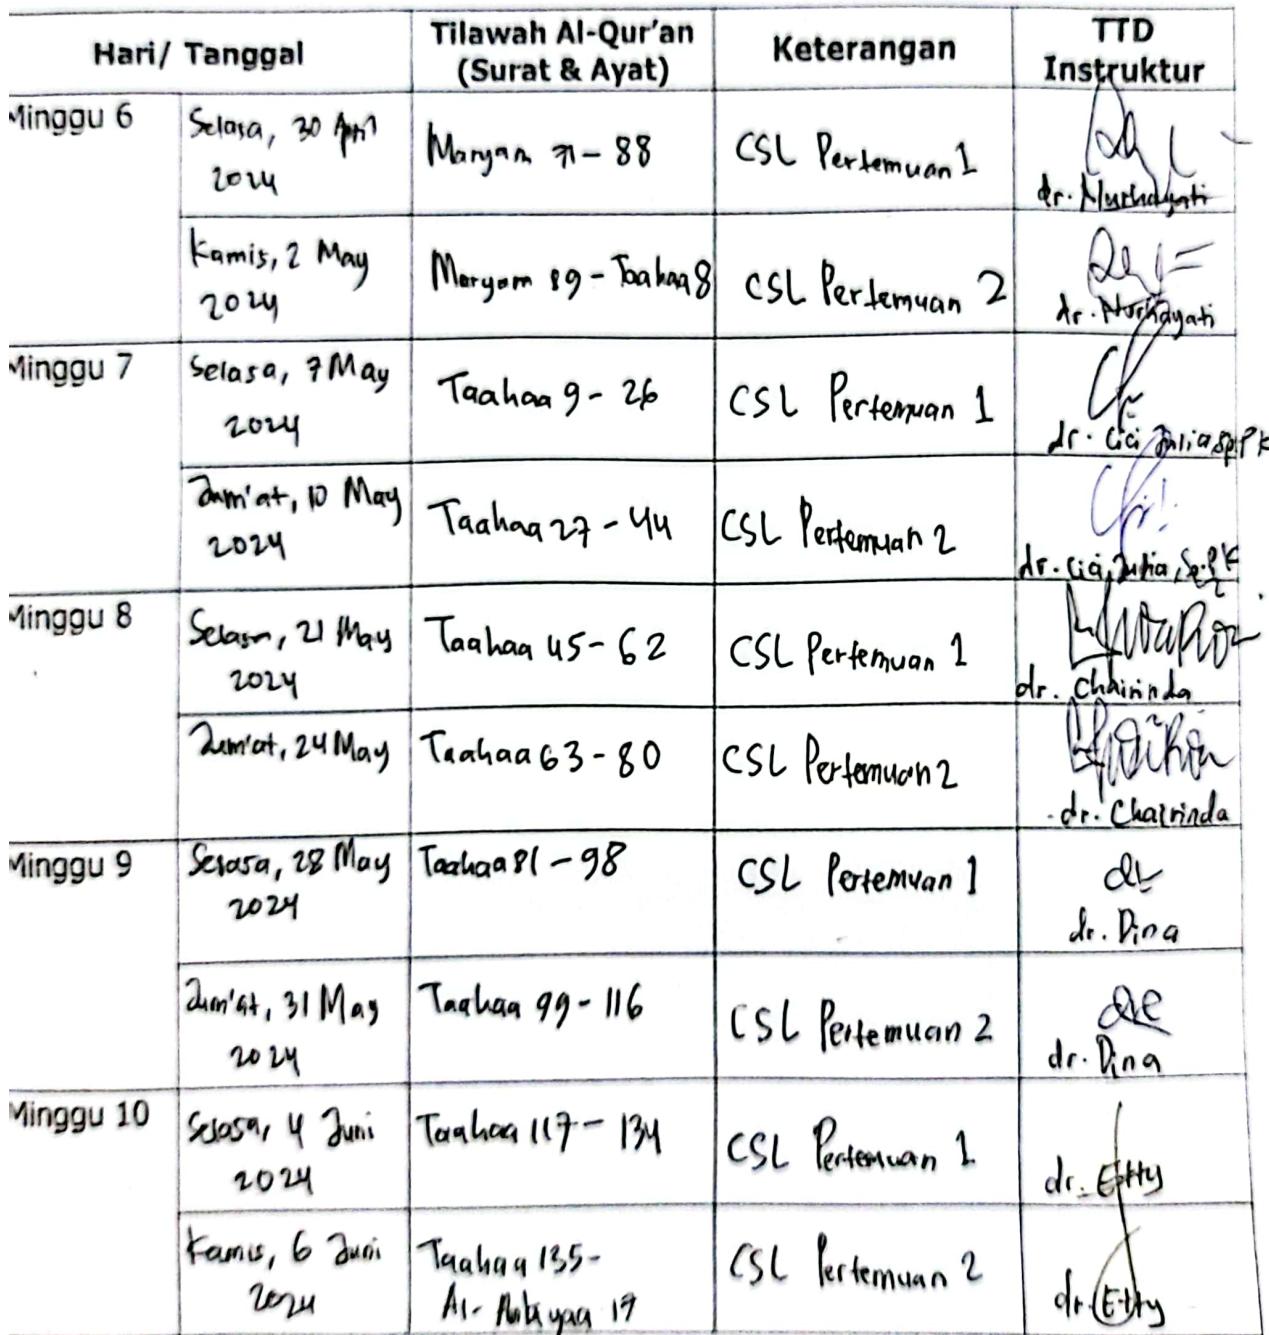 Hari/ Tanggal
Tilawah Al-Qur'an
(Surat & Ayat)
Keterangan
TTD
Instruktur
Minggu 6
Selasa, 30 April
2024
Maryam 71 - 88
CSL Pertemuan 1
dr. Nurhayati
Kamis, 2 May
2024
Maryam 89 - Taahaa 8
CSL Pertemuan 2
dr. Nurhayati
Minggu 7
Selasa, 7 May
2024
Taahaa 9 - 26
CSL Pertemuan 1
dr. Cici Julia Sp.PK
Jum'at, 10 May
2024
Taahaa 27 - 44
CSL Pertemuan 2
dr. Cici, Julia, Sp.PK
Minggu 8
Selasa, 21 May
2024
Taahaa 45 - 62
CSL Pertemuan 1
dr. Chairinda
Jum'at, 24 May
Taahaa 63 - 80
CSL Pertemuan 2
dr. Chairinda
Minggu 9
Selasa, 28 May
2024
Taahaa 81 - 98
CSL Pertemuan 1
dr. Dina
Jum'at, 31 May
2024
Taahaa 99 - 116
CSL Pertemuan 2
dr. Dina
Minggu 10
Selasa, 4 Juni
2024
Taahaa 117 - 134
CSL Pertemuan 1
dr. Etty
Kamis, 6 Juni
2024
Taahaa 135 -
Al-Anbiyaa 17
CSL Pertemuan 2
dr. Etty